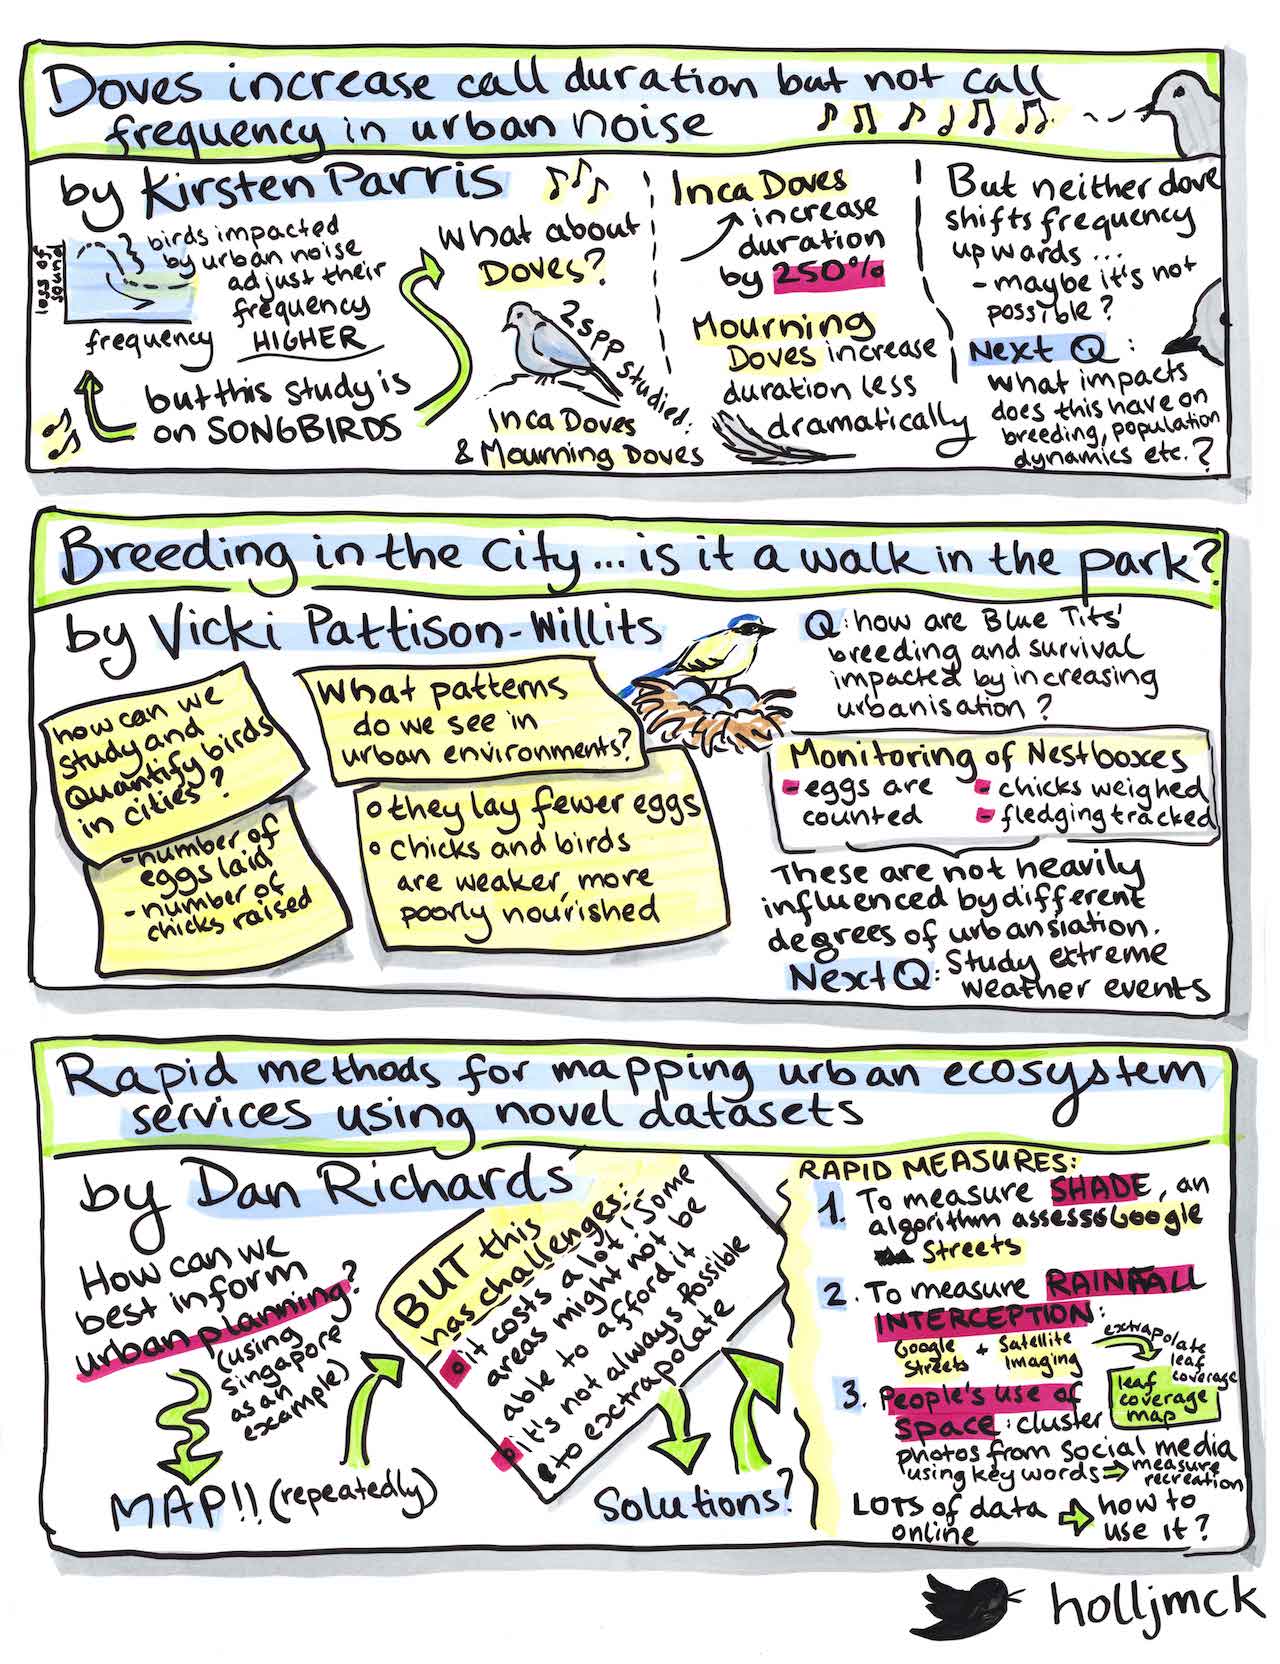 Doves increase call duration but not call
frequency in urban noise
by Kirsten Parris
loss of
sound
frequency
birds impacted
by urban noise
adjust their
frequency
HIGHER
but this study is
on SONGBIRDS
What about
Doves?
2spp studied:
Inca Doves
& Mourning Doves
Inca Doves
increase
duration
by 250%
Mourning
Doves increase
duration less
dramatically
But neither dove
shifts frequency
upwards...
- maybe it's not
possible?
Next Q:
what impacts
does this have on
breeding, population
dynamics etc.?
Breeding in the City... is it a walk in the park?
by Vicki Pattison-Willits
how can we
study and
Quantify birds
in cities?
- number of
eggs laid
- number of
chicks raised
What patterns
do we see in
urban environments?
o they lay fewer eggs
o chicks and birds
are weaker, more
poorly nourished
Q: how are Blue Tits'
breeding and survival
impacted by increasing
urbanisation?
Monitoring of Nestboxes
- eggs are
counted
- chicks weighed
- fledging tracked
These are not heavily
influenced by different
degrees of urbansiation.
Next Q: Study extreme
weather events
Rapid methods for mapping urban ecosystem
services using novel datasets
by Dan Richards
How can we
best inform
urban planning?
(using
singapore
as an
example)
MAP!! (repeatedly)
BUT this
has challenges:
o it costs a lot! Some
areas might not be
able to afford it
o it's not always possible
to extrapolate
Solutions?
RAPID MEASURES:
1. To measure SHADE, an
algorithm assess Google
Streets
2. To measure RAINFALL
INTERCEPTION:
Google
Streets
+ Satellite
Imaging
extrapolate
leaf
coverage
leaf
coverage
map
3. People's use of
space: cluster
photos from social media
using key words ⇒ measure
recreation
LOTS of data
online
⇒ how to
use it?
holljmck